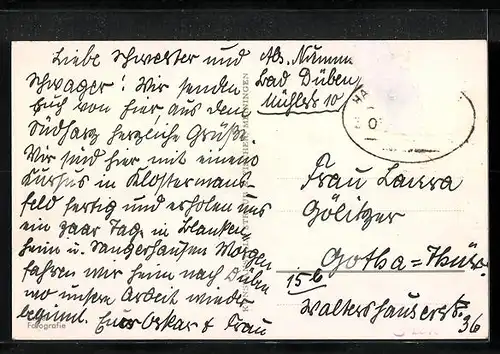 Liebe Schwester und
Schwager! Wir senden
Euch von hier, aus dem
Südharz herzliche Grüße.
Wir sind hier mit einem
Kursus in Klostermans-
feld fertig und erholen uns
ein paar Tage in Blanken
heim u. Sangerhausen Morgen
fahren wir heim nach Düben
wo unsere Arbeit wieder
beginnt. Euer Oskar & Frau
Fotografie
Abs. Numm
Bad Düben
Mühlstr 10
Frau Laura
Gölitzer
Gotha=Thür.
15b
Waltershäuserstr.
36